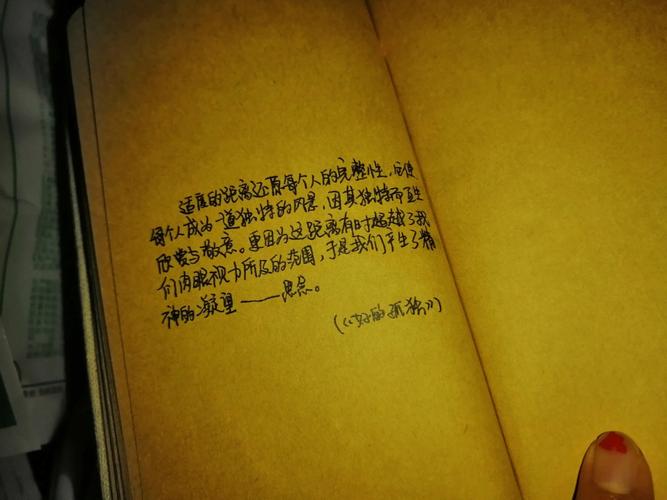 适度的距离还原每个人的完整性，它使
每个人成为一道独特的风景，因其独特而互生
欣赏与敬意。更因为这距离有时超越了我
们肉眼视力所及的范围，于是我们产生了精
神的凝望——思念。
（《好的孤独》）